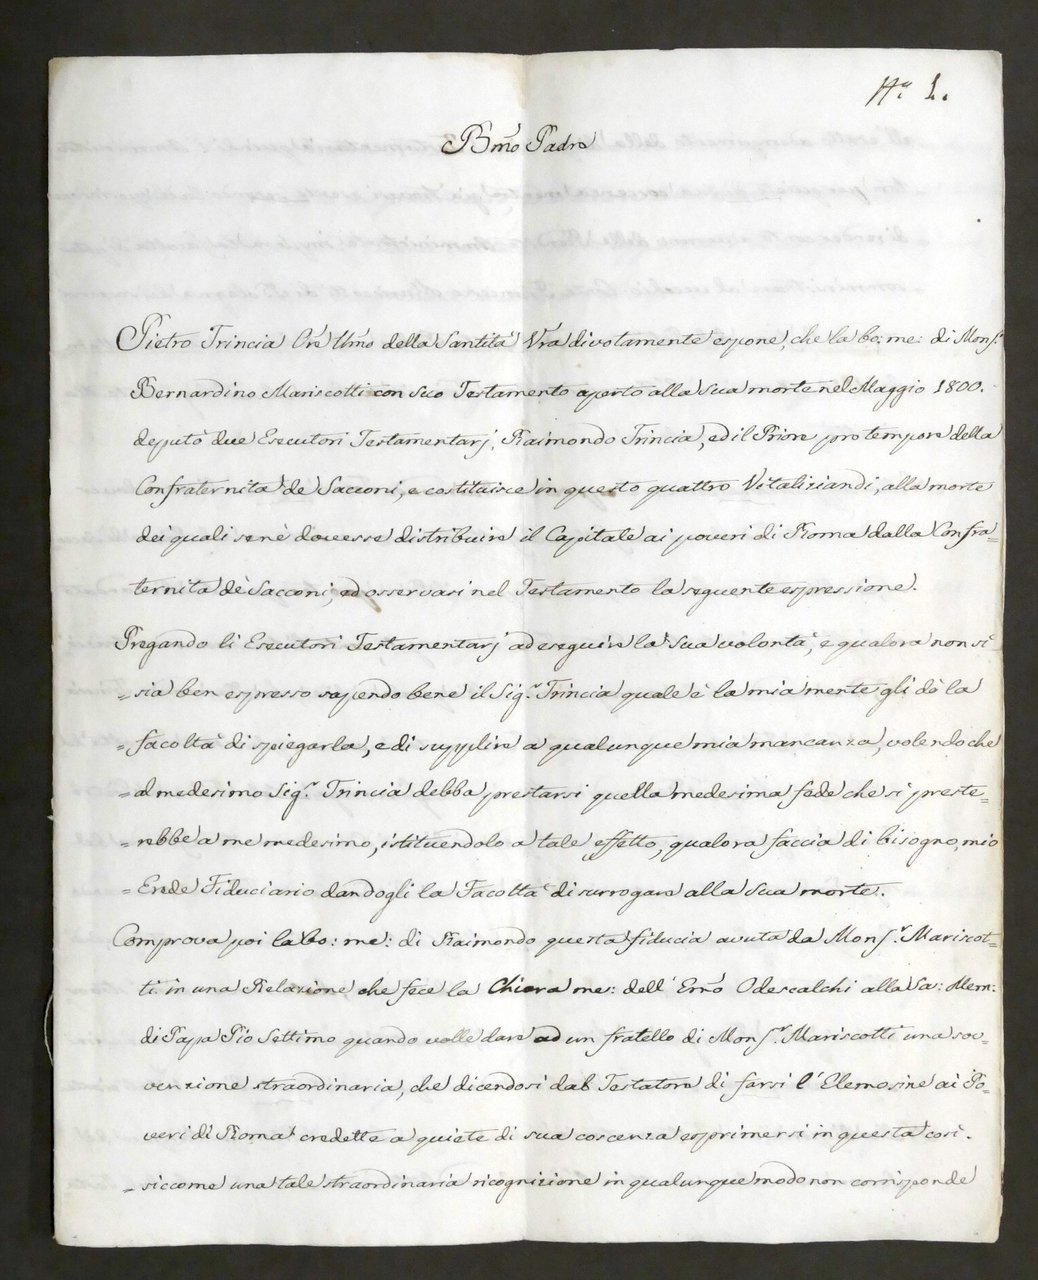 N.° 1.
Bmo Padre
Pietro Trincia Ore Umo della Santità Vra divotamente espone, che la bo: me: di Mons.r
Bernardino Mariscotti con suo Testamento aperto alla sua morte nel Maggio 1800.
deputò due Esecutori Testamentarj, Raimondo Trincia, ed il Priore pro tempore della
Confraternita de' Sacconi, e costituisce in questo quattro Vitaliziandi, alla morte
dei quali se nè dovesse distribuire il Capitale ai poveri di Roma dalla Confra=
ternita dè Sacconi, ed osservasi nel Testamento la seguente espressione.
Pregando li Esecutori Testamentarj ad eseguire la sua volontà, e qualora non si
= sia ben espresso sapendo bene il Sig.r Trincia quale è la mia mente gli dò la
= facoltà di spiegarla, e di supplire a qualunque mia mancanza, volendo che
= al medesimo Sig.r Trincia debba prestarsi quella medesima fede che si preste=
= rebbe a me medesimo, istituendolo a tale effetto, qualora faccia di bisogno, mio
= Erede Fiduciario dandogli la Facoltà di surrogare alla sua morte.
Comprova poi la bo: me: di Raimondo questa fiducia avuta da Mons.r Mariscot=
ti in una Relazione che fece la Chiara me: dell' Emo Odescalchi alla Sa: Mem:
di Papa Pio Settimo quando volle dare ad un fratello di Mons.r Mariscotti una sov=
venzione straordinaria, che dicendosi dal Testatore di farsi l'Elemosine ai Po=
veri di Roma credette a quiete di sua coscenza esprimersi in questa così.
= siccome una tale straordinaria ricognizione in qualunque modo non corrisponde